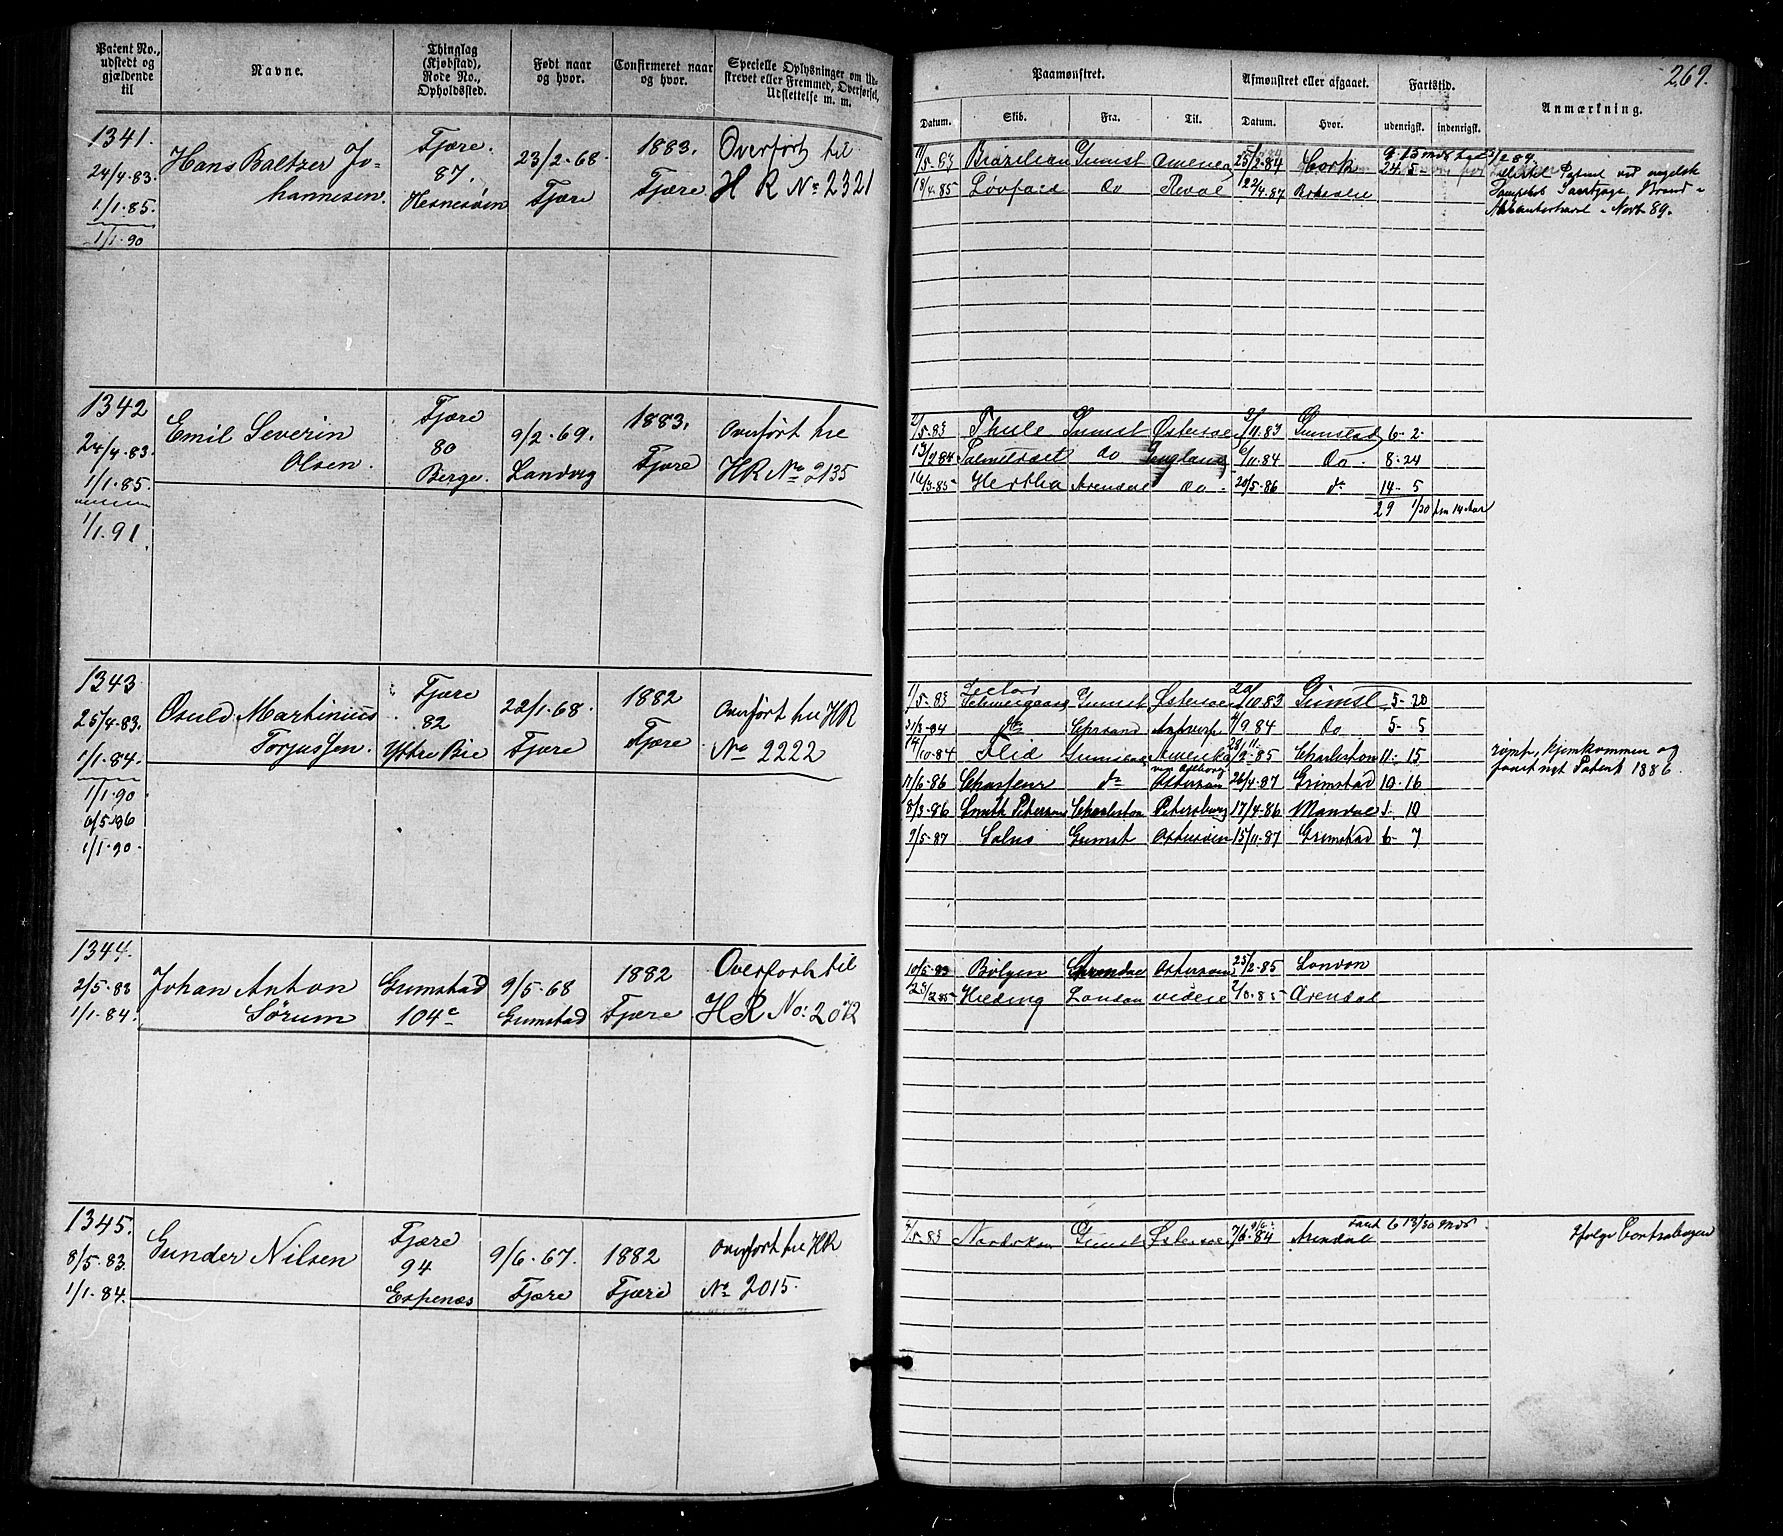 Patent No., udstedt og gjældende til
Navne.
Thinglag (Kjøbstad), Rode No., Opholdssted.
Født naar og hvor.
Confirmeret naar og hvor.
Specielle Oplysninger om Udskrevet eller Fremmed, Overførsel, Udslettelse m. m.
Paamønstret.
Afmønstret eller afgaaet.
Fartstid.
Anmærkning.
269.
Datum.
Skib.
Fra.
Til.
Datum.
Hvor.
udenrigst.
indenrigst.
1341.
24/4.83.
1/1.85.
1/1.90
Hans Baltzer Jo-
hannesen.
Fjære.
87.
Hesnesøen
23/2.68.
Fjære
1883.
Fjære
Overført til
H R No 2321
11/5.83 Brazilian Grimst Amerika 25/2.84 Cork
18/4.85 Løvfald do Reval 22/4.87 24.5
1342
24/4.83.
1/1.85.
1/1.91.
Emil Severin
Olsen.
Fjære
80
Berge.
9/2.69.
Landvig
1883.
Fjære
Overført til
HR No 2135
2/5.83 Thule Grimst Østersøe 3/11.83 Grimstad 6-2-
13/2.84 do England 6/11.84 do 8-24
16/3.85 Hertha Arendal do 20/5.86 do 14-5
29 1/30
1343
25/4.83.
1/1.84.
1/1.90
6/5.86
1/1.90.
Osuld Martinius
Torjussen.
Fjære
82
Ytre Bie
22/1.68.
Fjære
1882
Fjære
Overført til HR
No 2222
1/5.83 Rector Schweigaard Grimst Østersøe 20/10.83 Grimst 5-20
21/3.84 do Chrsand Antwerp 4/9.84 do 5-5
14/10.84 Flid Grimstad Amerika 28/9.85 Charleston 11-15
11/6.86 Chasseur do Østersøen 26/4.87 Grimstad 10-16
8/3.86 Smith Petersen Charleston Petersburg 17/4.86 Mandal 1-10
9/5.87 Grimst Østersøen 15/11.87 Grimstad 6-7
rømt, hjemkommen og
faaet nyt Patent 1886.
1344.
2/5.83
1/1.84.
Johan Anton
Sørum
Grimstad
104c
9/5.68
Grimstad
1882
Fjære
Overført til
HR No: 2012
10/5.83 Bølgen Arendal Østersøen 25/2.85 London
23/2.85 Hilding London videre Arendal
1345.
8/5.83.
1/1.84.
Gunder Nilsen
Fjære
94
Espenæs
9/6.67.
Fjære
1882
Fjære
Overført til HR
No 2015.
Grimst Østersøe 7/6.84 Arendal
Fart 6 13/30 mdr.
Ifølge Contrabogen